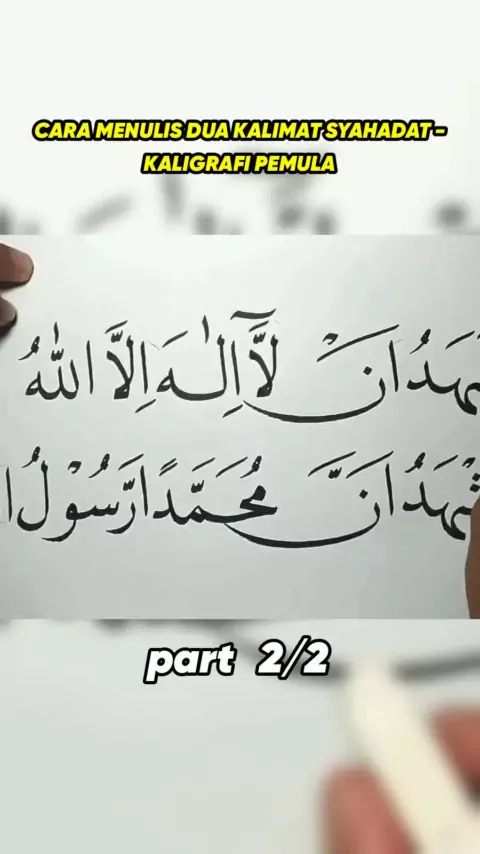 CARA MENULIS DUA KALIMAT SYAHADAT -
KALIGRAFI PEMULA
ـهَدُ اَنْ لَّآ اِلٰهَ اِلَّا اللّٰهُ
شْهَدُ اَنَّ مُحَمَّدًا رَّسُوْلُ ا
part 2/2